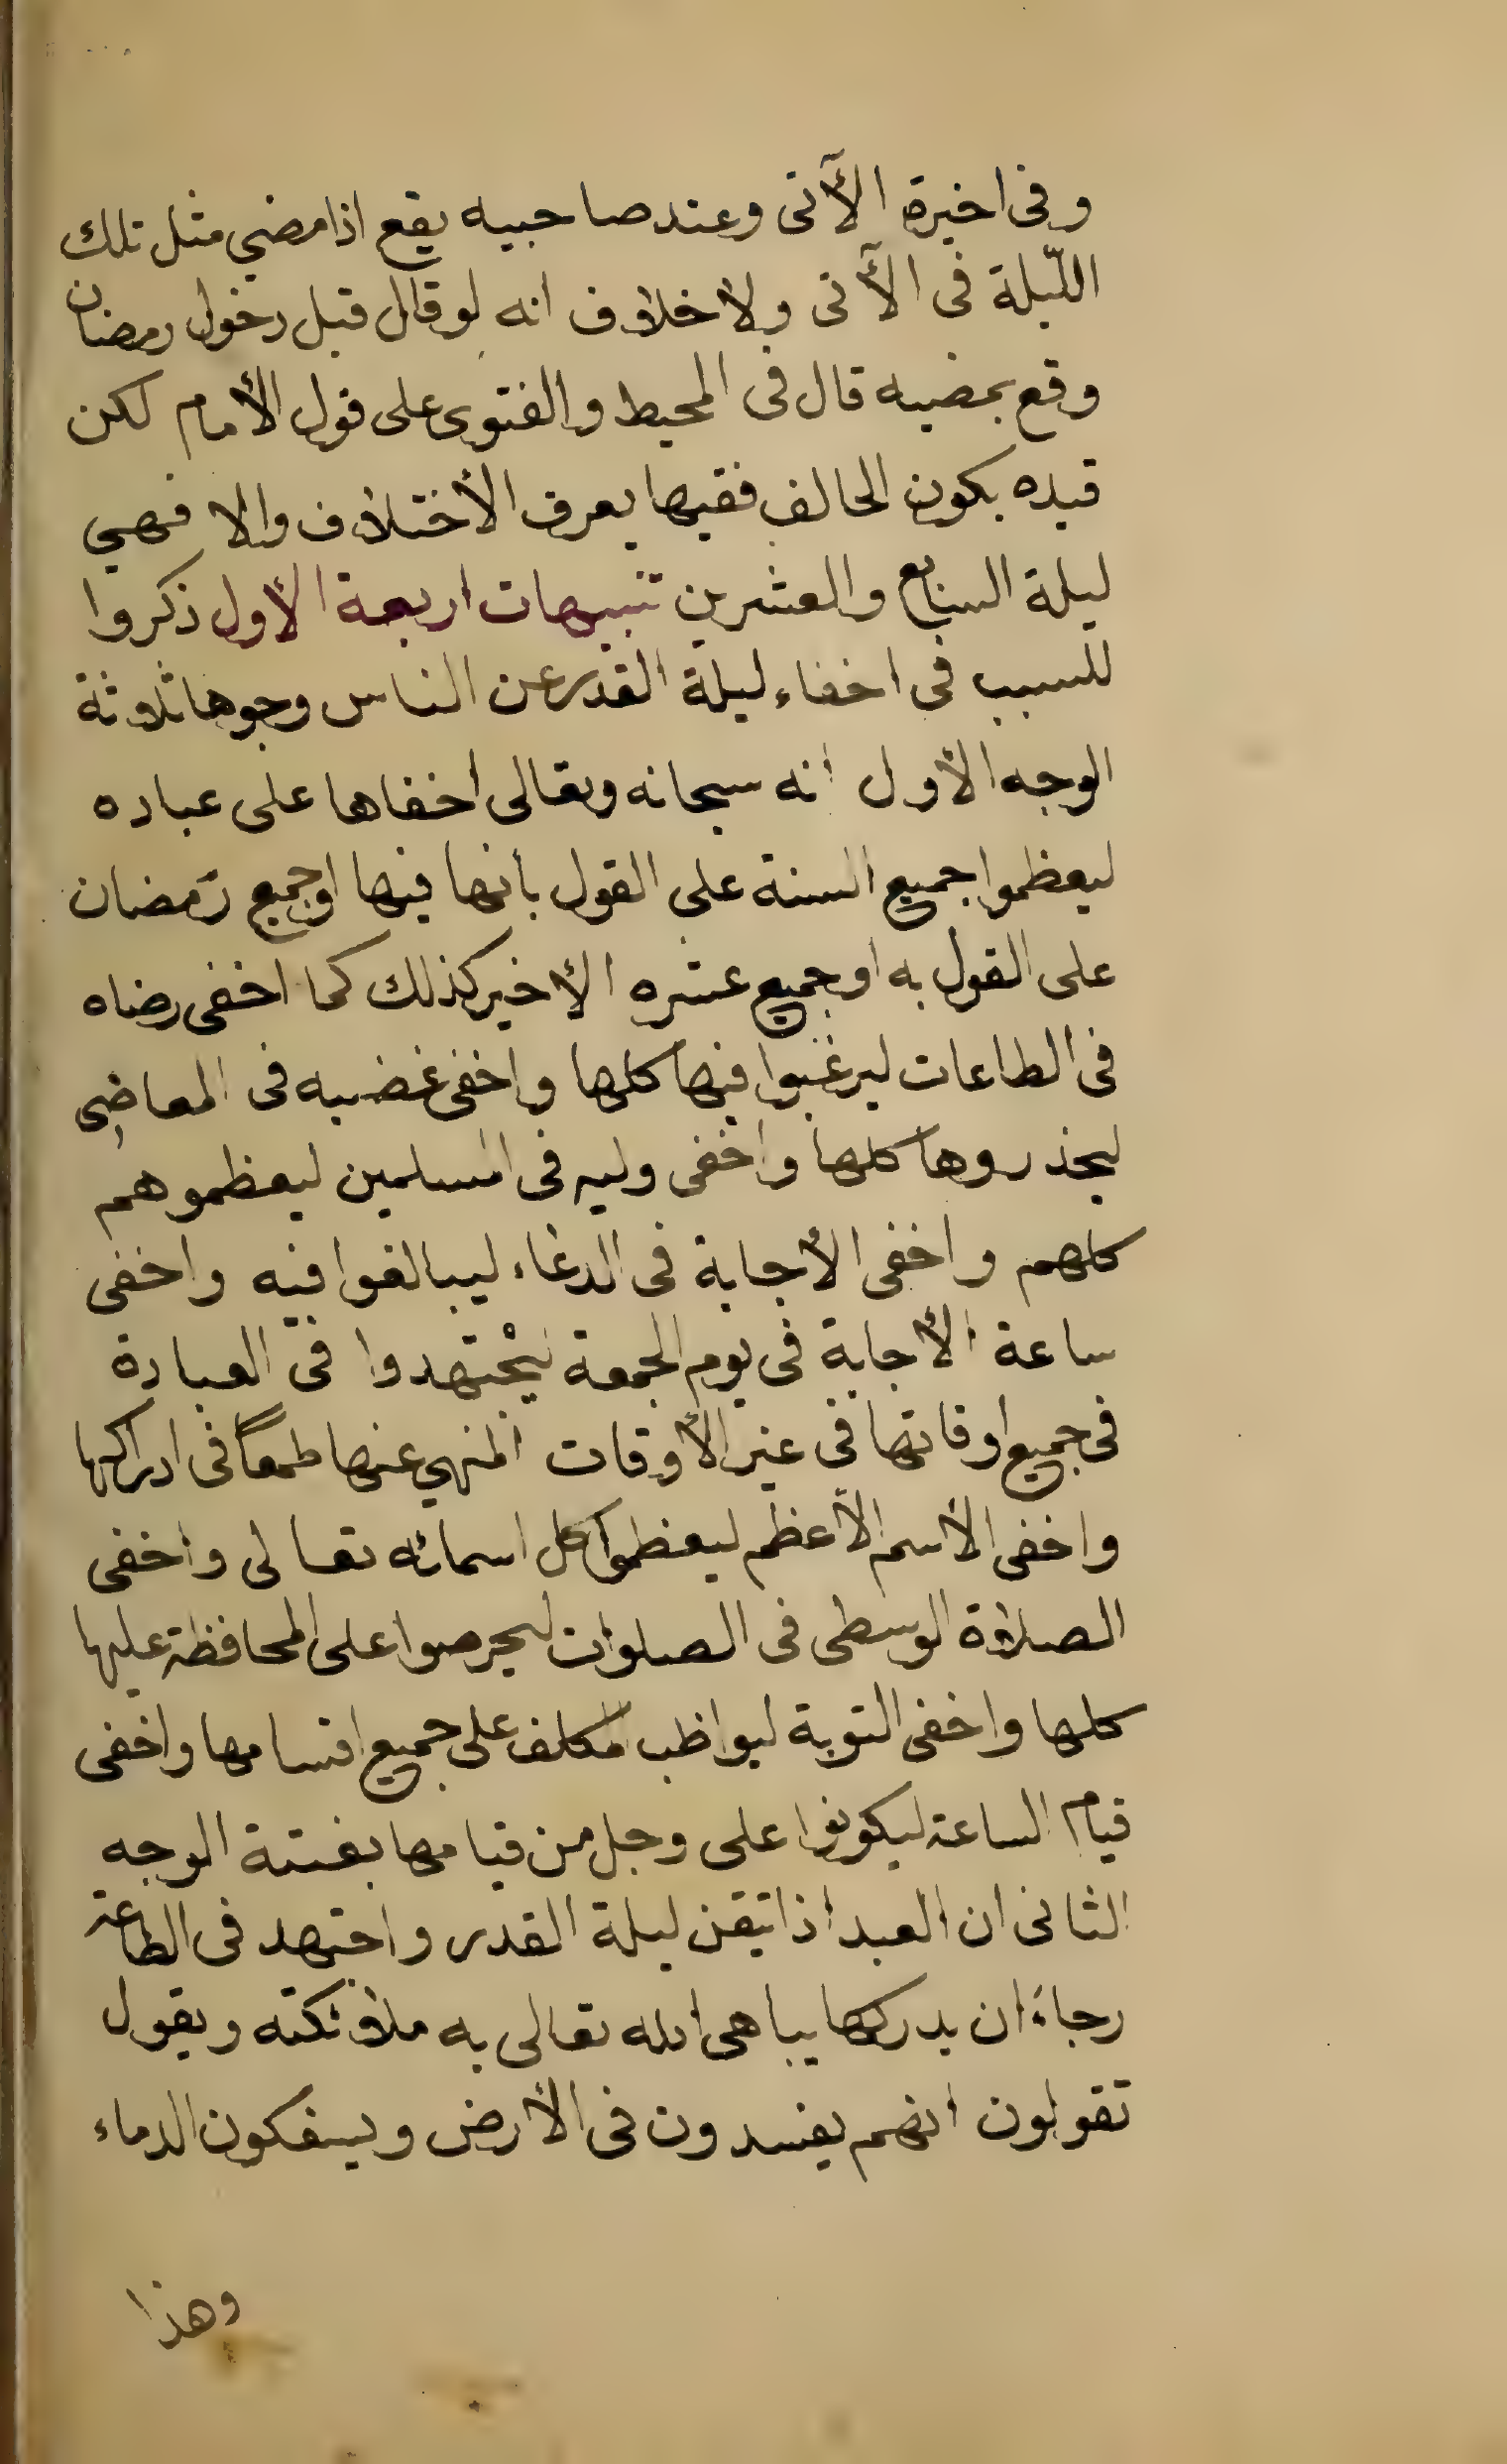 وفى اخيرة الآتى وعند صاحبيه يقع اذا مضي مثل تلك
اللّيلة فى الآتى ولا خلاف انه لو قال قبل دخول رمضان
وقع بمضيه قال فى المحيط والفتوى على قول الأمام لكن
قيده بكون الحالف فقيها يعرف الأختلاف والا فهي
ليلة السابع والعشرين تنبيهات اربعة الأول ذكروا
للسبب فى اخفاء ليلة القدر عن الناس وجوها ثلاثة
الوجه الأول انه سبحانه وتعالى اخفاها على عباده
ليعظموا جميع السنة على القول بأنها فيها او جميع رمضان
على القول به او جميع عشره الأخير كذلك كما اخفى رضاه
فى الطاعات ليرغبوا فيها كلها واخفى غضبه فى المعاضى
ليحذروها كلها واخفى وليه فى المسلمين ليعظموهم
كلهم واخفى الأجابة فى الدعاء ليبالغوا فيه واخفى
ساعة الأجابة فى يوم الجمعة ليجْتهدوا فى العبادة
فى جميع اوقاتها فى غير الأوقات المنهي عنها طمعاً فى ادراكها
واخفى الأسم الأعظم ليعظموا كل اسمائه تعالى واخفى
الصلاة الوسطى فى الصلوات ليحرصوا على المحافظة عليها
كلها واخفى التوبة ليواظب المكلف على جميع اقسامها واخفى
قيام الساعة ليكونوا على وجل من قيامها بغتة الوجه
الثانى ان العبد اذا تيقن ليلة القدر واجتهد فى الطاعة
رجاء ان يدركها يباهى الله تعالى به ملائكته ويقول
تقولون انهم يفسدون فى الأرض ويسفكون الدماء
وهذا